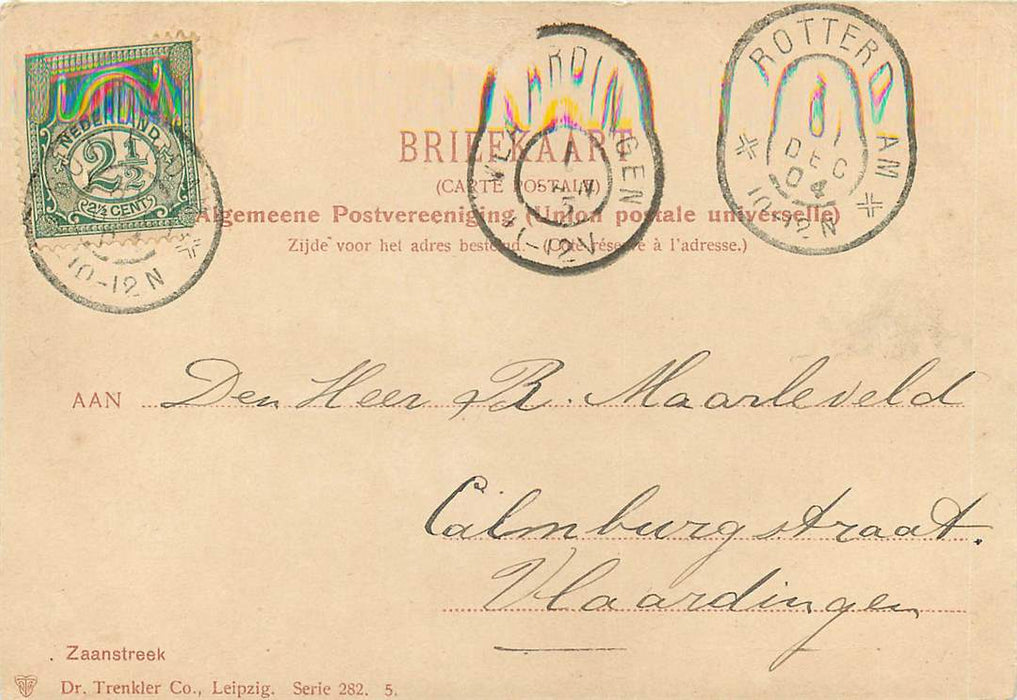 NEDERLAND
2½
2½ CENT
10-12 N
VLAARDINGEN
1
JAN
5
11-12V
ROTTERDAM
31
DEC
04
10-12N
BRIEFKAART
(CARTE POSTALE)
Algemeene Postvereeniging (Union postale universelle)
Zijde voor het adres bestemd. (Côté réservé à l'adresse.)
AAN Den Heer B. Maarleveld
Calmburgstraat.
Vlaardingen
Zaanstreek
Dr. Trenkler Co., Leipzig. Serie 282. 5.